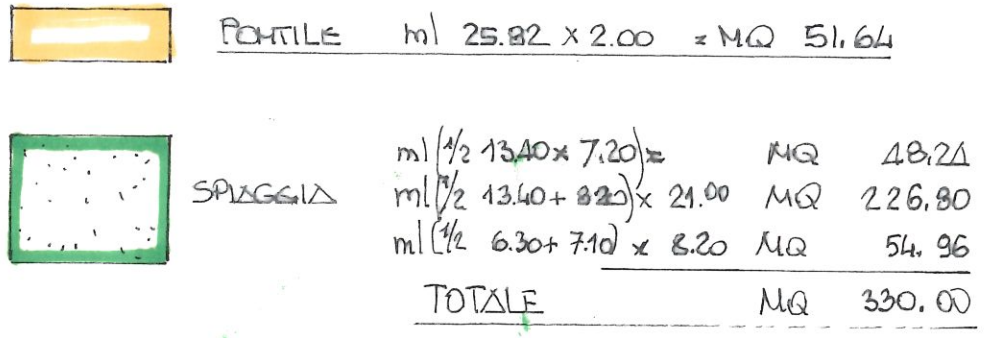 PONTILE ml 25.82 x 2.00 = MQ 51.64
ml (1/2 13.40 x 7.20) = MQ 48,24
SPIAGGIA ml (1/2 13.40 + 8.20) x 21.00 MQ 226,80
ml (1/2 6.30 + 7.10) x 8.20 MQ 54.96
TOTALE MQ 330.00